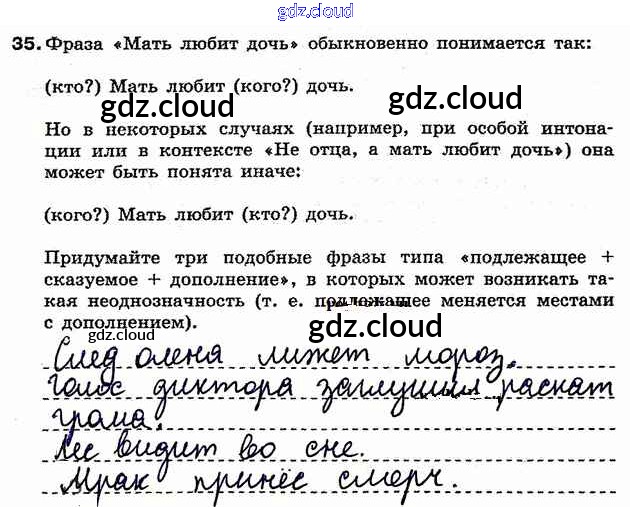 gdz.cloud
35. Фраза «Мать любит дочь» обыкновенно понимается так:
(кто?) Мать любит (кого?) дочь.
gdz.cloud gdz.cloud
Но в некоторых случаях (например, при особой интона-
ции или в контексте «Не отца, а мать любит дочь») она
может быть понята иначе:
(кого?) Мать любит (кто?) дочь.
Придумайте три подобные фразы типа «подлежащее +
сказуемое + дополнение», в которых может возникать та-
кая неоднозначность (т. е. подлежащее меняется местами
с дополнением).
gdz.cloud
gdz.cloud
След оленя лижет мороз.
Голос диктора заглушил раскат
грома.
Лес видит во сне.
Мрак принёс смерч.